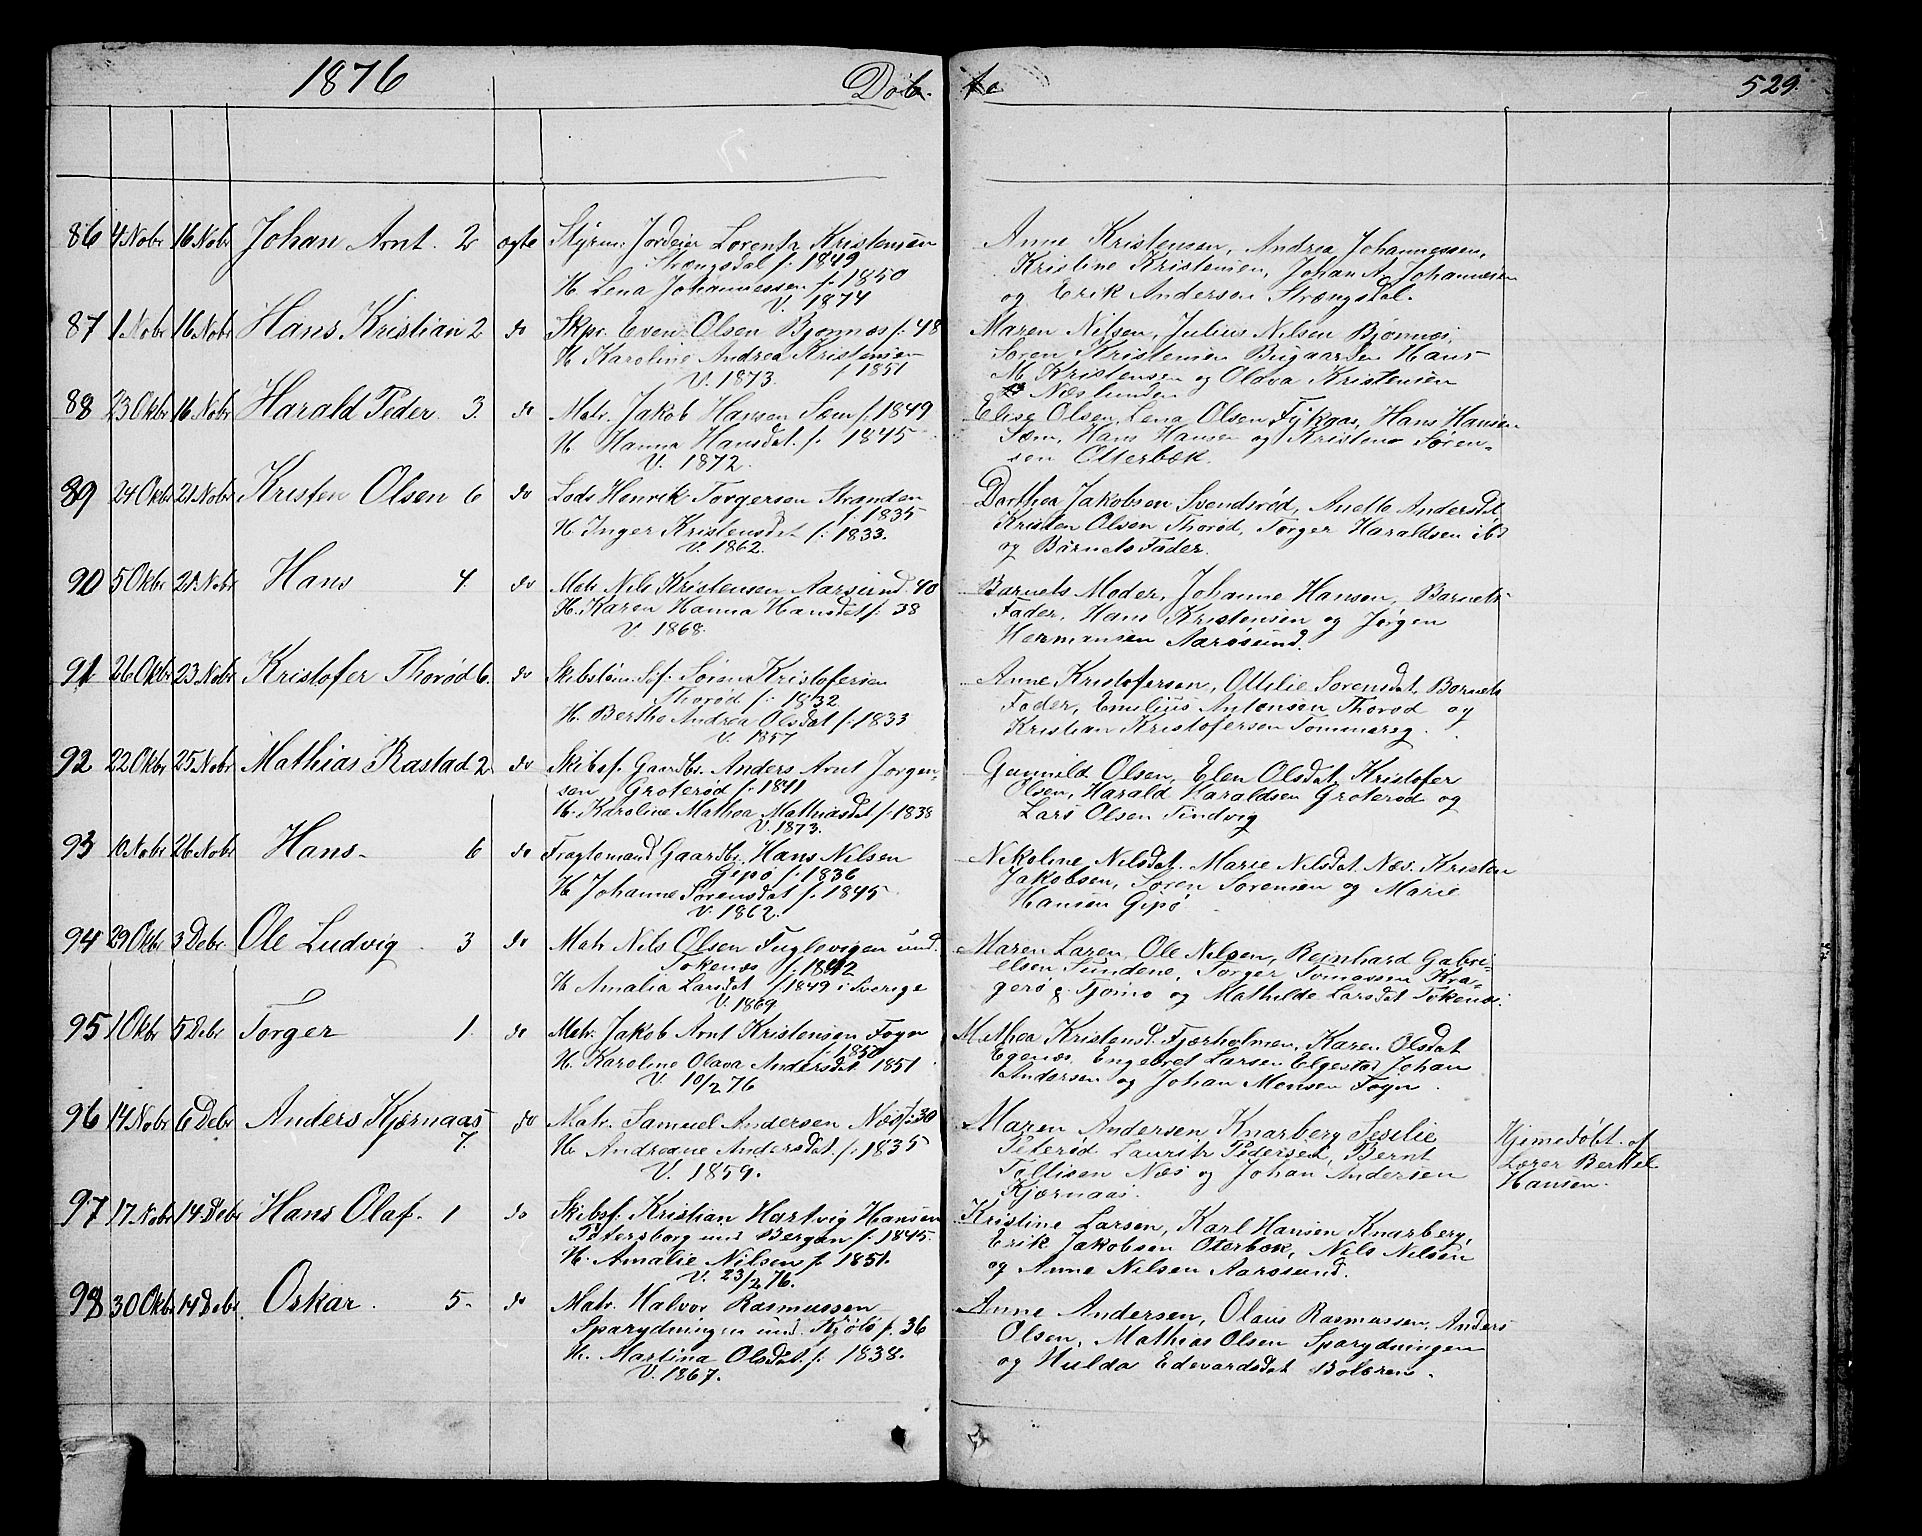 1876 Døb- te 529.
86 4 Nobr 16 Nobr Johan Arnt. 2 ægte Styrm. Jordeier Lorents Kristensen
Strængsdal f. 1849
H. Lena Johannessen f. 1850
V. 1874
Anne Kristensen, Andrea Johannessen,
Kristine Kristensen, Johan A. Johannesen
og Erik Andersen Strængsdal.
87 1 Nobr 16 Nobr Hans Kristian 2 do Skpr. Even Olsen Bjønnes f. 48
H. Karoline Andrea Kristensen
V. 1873. f 1851
Maren Nilsen, Julius Nilsen Bjønnes,
Søren Kristensen Bugaarden Hans
M. Kristensen og Olava Kristensen
Næslunden
88 23 Okbr 16 Nobr Harald Peder. 3. do Matr. Jakob Hansen Sæm f. 1849
H. Hanna Hansdat. f. 1845
V. 1872.
Elise Olsen, Lena Olsen Fykaas, Hans Hansen
Sæm, Hans Hansen og Kristine Søren-
sen Otterbæk.
89 24 Okbr 21 Nobr Kristen Olsen 6 do Lods Henrik Torgersen Stranden
f. 1835
H. Inger Kristensdat f. 1833.
V. 1862.
Dorthea Jakobsen Svenderød, Anette Andersdt
Kristen Olsen Thorød, Torger Haraldsen ibd
og Barnets Fader.
90 5 Okbr 21 Nobr Hans 4. do Matr Nils Kristensen Aarøsund. 40
H. Karen Hanna Hansdat f. 38
V. 1868.
Barnets Moder, Johanne Hansen, Barnets
Fader, Hans Kristensen og Jørgen
Hermansen Aarøsund.
91 26 Okbr 23 Nobr Kristofer Thorød 6. do Skibstøm. Sjf. Søren Kristofersen
Thorød f. 1832
H. Berthe Andrea Olsdat f. 1833
V. 1857
Anne Kristofersen, Ottilie Sørensdat, Barnets
Fader, Emilius Antonsen Thorød og
Kristian Kristofersen Tommereg.
92 22 Okbr 25 Nobr Mathias Rastad 2 do Skibsf. Gaardbr. Anders Arnt Jørgen-
sen, Groterød f. 1841
H. Karoline Mathea Mathiasdat f. 1838
V. 1873.
Gunnild Olsen, Elen Olsdat, Kristofer
Olsen, Harald Haraldsen Groterød og
Lars Olsen Tindvig
93 10 Nobr 26 Nobr Hans 6 do Fragtemand Gaardbr. Hans Nilsen
Gipø f. 1836
H. Johanne Sørensdat f. 1845
V. 1862.
Nikoline Nilsdat. Marie Nilsdat Næs. Kristen
Jakobsen, Søren Sørensen og Marie
Hansen Gipø
94 29 Okbr 3 Debr. Ole Ludvig 3 do Matr Nils Olsen Fuglevigen und.
Tokenæs f. 1842
H. Amalia Larsdat f. 1849 i Sverige
V. 1869
Maren Laren, Ole Nilsen, Reinhard Gabri-
elsen Sundene, Torger Tomassen Kra-
gerø, Tjømø og Mathilde Larsdat Tokenæs.
95 1 Okbr 5 Debr Torger 1. do Matr. Jakob Arnt Kristensen Føyn
f. 1850
H. Karoline Olava Andersdat 1851
V. 10/2 76
Mathea Kristensd. Fjærholmen, Karen Olsdat
Egenæs. Engebret Larsen Elgestad Johan
Andersen og Johan Monsen Føyn.
96 14 Nobr 6 Debr Anders Kjærnaas
7. do Matr. Samuel Andersen Næs f. 30
H. Andreane Andersdat. f. 1835
V. 1859.
Maren Andersen Knarberg, Sesilie
Peterød, Laurits Pedersen, Bernt
Tollisen Næs og Johan Andersen
Kjærnaas.
Hjemedøbt af
Lærer Berthel
Hansen.
97 17 Nobr 14 Debr Hans Olaf. 1 do Skibsf. Kristian Hartvig Hansen
Petersborg und Bergan f. 1845.
H. Amalie Nilsen f. 1851.
V. 23/2 76.
Kristine Larsen, Karl Hansen Knarberg,
Erik Jakobsen Oterbæk, Nils Nilsen
og Anne Nilsen Aarøsund.
98 30 Okbr 14 Debr Oskar. 5. do Matr. Halvor Rasmussen
Sparydningen und. Kjøle f. 36
H. Martina Olsdat. f. 1838.
V. 1867.
Anne Andersen, Olaus Rasmussen, Anders
Olsen, Mathias Olsen Sparydningen
og Hulda Edevardsdat Bolæren.